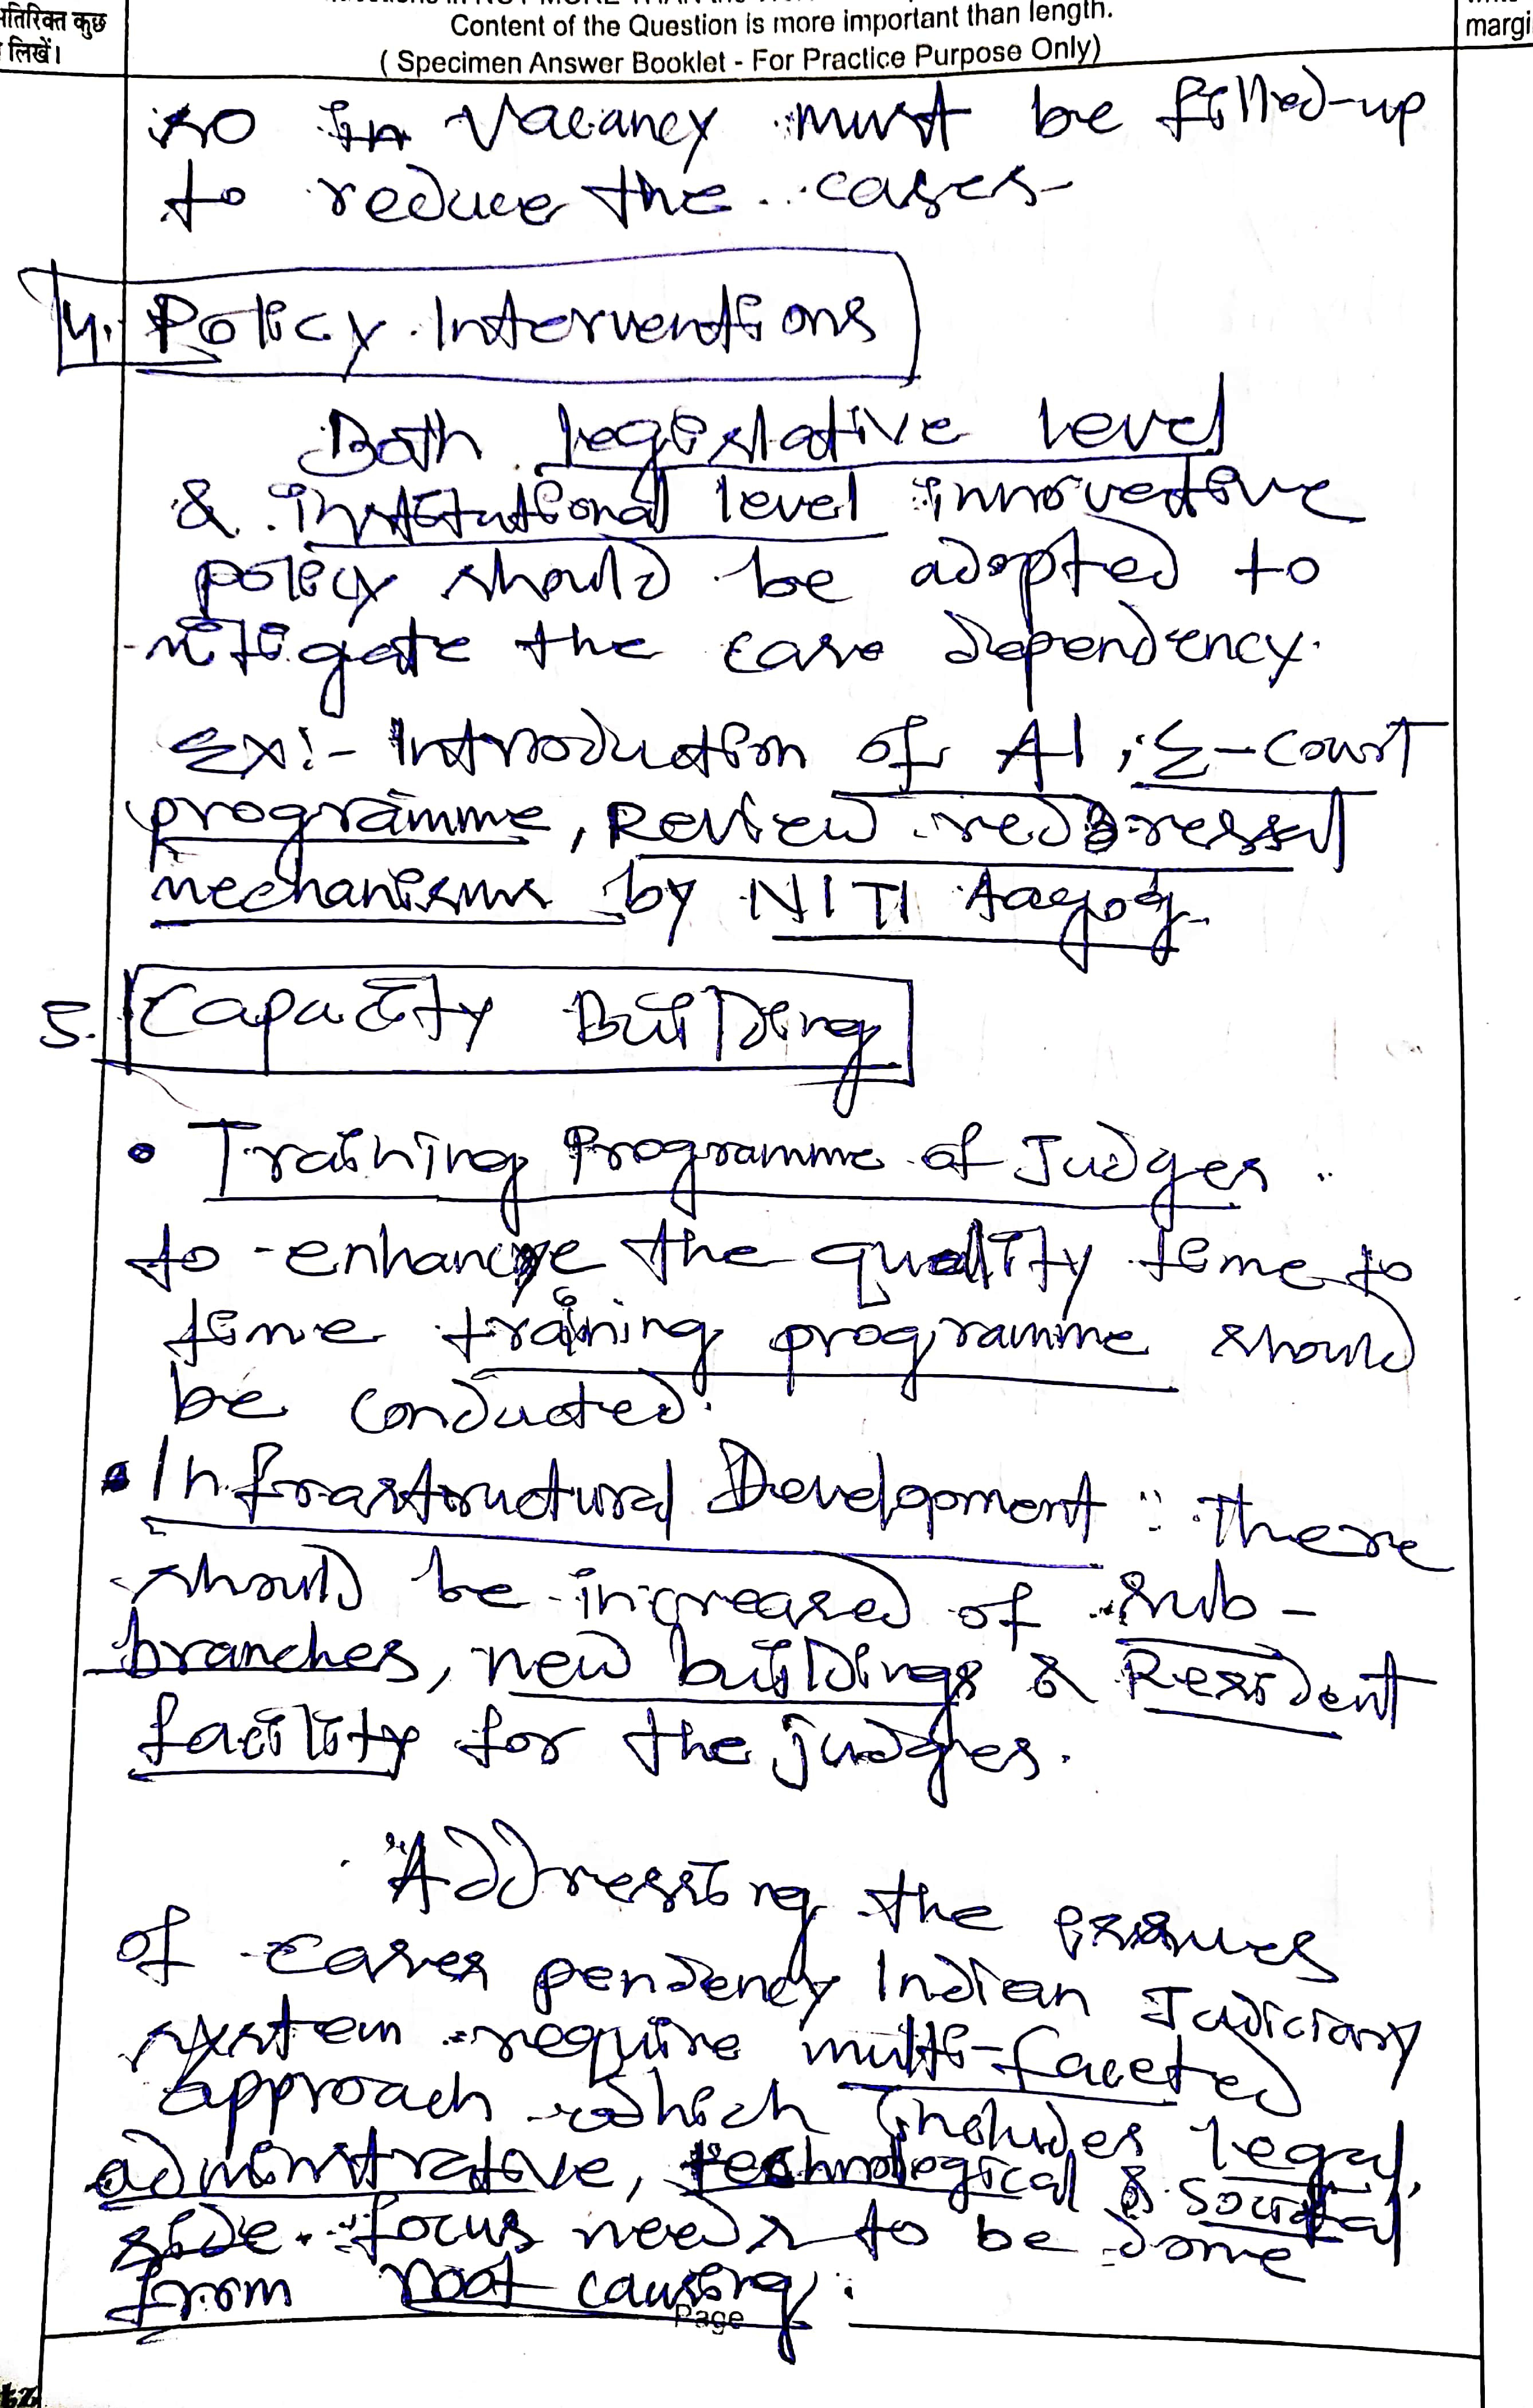 अतिरिक्त कुछ
लिखें।
Content of the Question is more important than length.
( Specimen Answer Booklet - For Practice Purpose Only)
margi
so in vacancy must be filled-up
to reduce the cases-
4. Policy Interventions
Both legislative level
& institutional level innovative
policy should be adopted to
mitigate the case dependency.
Ex:- Introduction of AI, E-court
programme, Review redressal
mechanisms by NITI Aayog.
5. Capacity Building
• Training Programme of Judges
to enhance the quality time to
time training programme should
be conducted.
• Infrastructural Development : There
should be increased of sub-
branches, new buildings & Resident
facility for the judges.
Addressing the issues
of cases pendency Indian Judiciary
system require multi-faceted
approach which includes legal,
administrative, technological & societal
side. focus needs to be done
from root causing.
Page